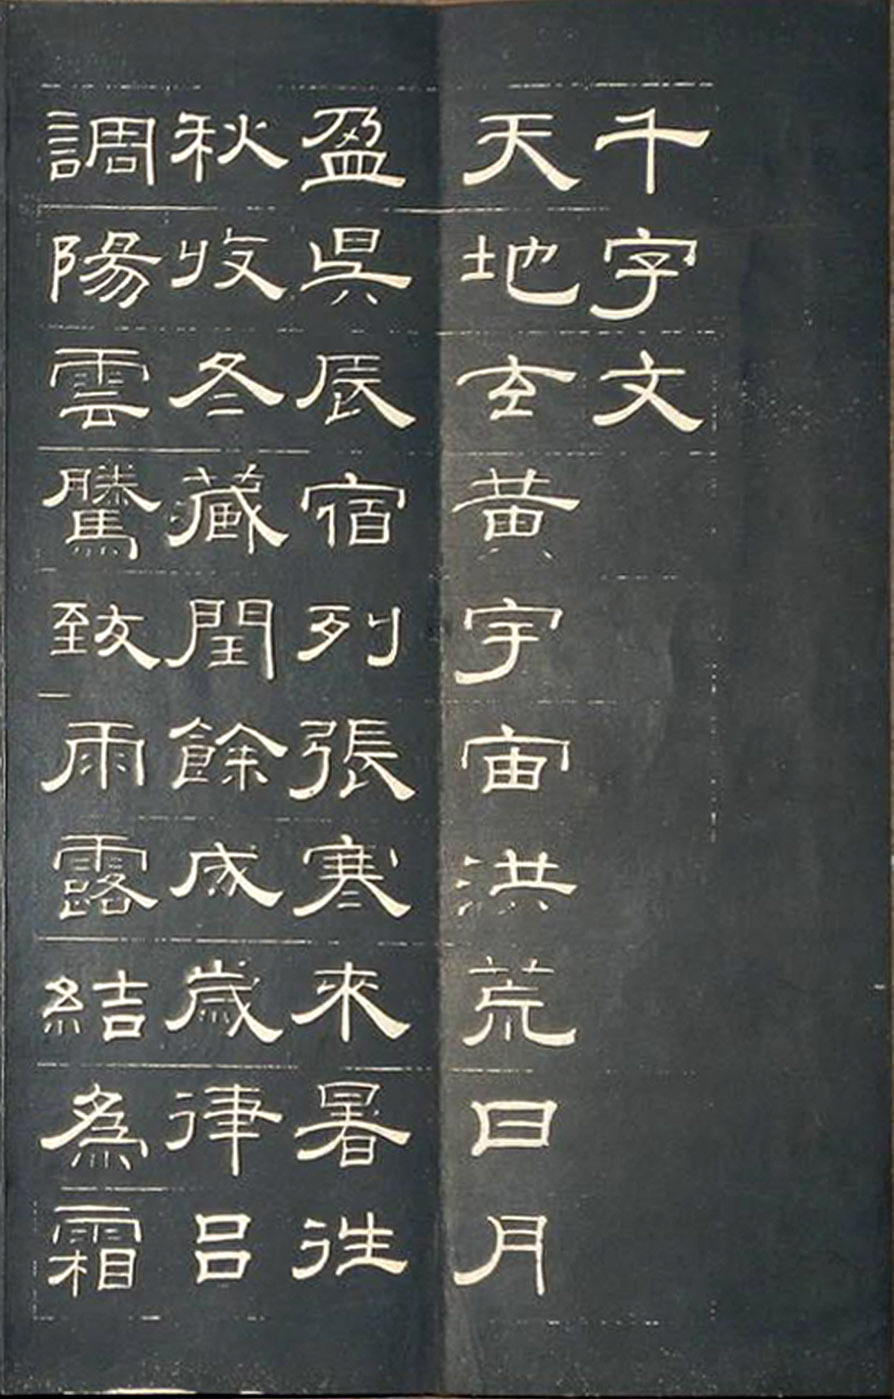 千字文
天地玄黃宇宙洪荒日月
盈昃辰宿列張寒來暑往
秋收冬藏閏餘成歲律呂
調陽雲騰致雨露結為霜